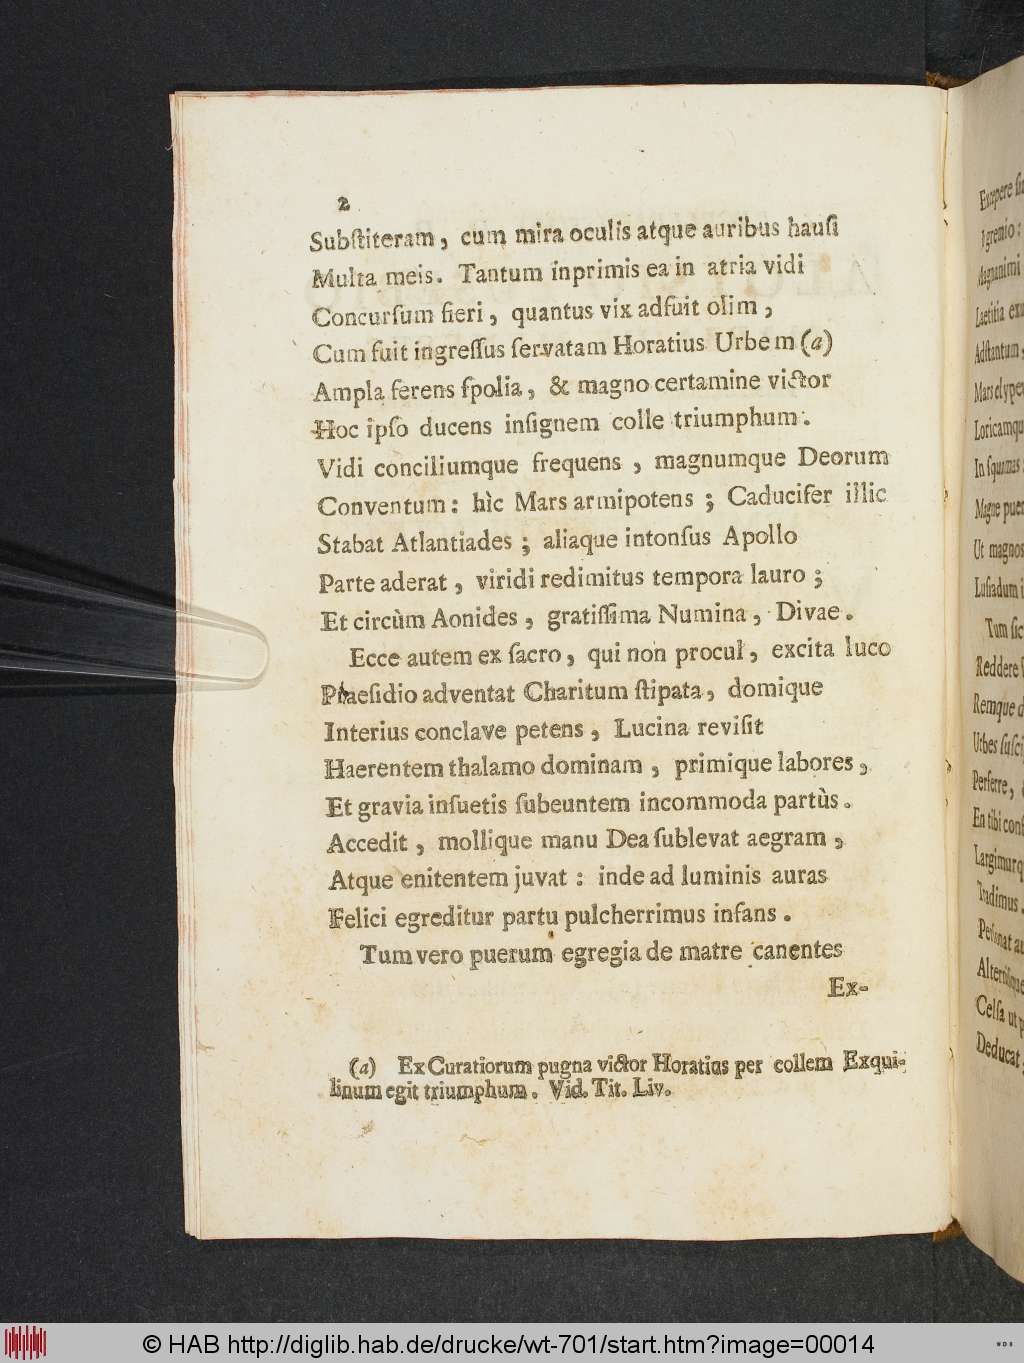 2
Subſtiteram, cum mira oculis atque auribus hauſi
Multa meis. Tantum inprimis ea in atria vidi
Concurſum fieri, quantus vix adfuit olim,
Cum fuit ingreſſus ſervatam Horatius Urbem (a)
Ampla ferens ſpolia, & magno certamine victor
Hoc ipſo ducens inſignem colle triumphum.
Vidi conciliumque frequens, magnumque Deorum
Conventum: hìc Mars armipotens; Caducifer illic
Stabat Atlantiades; aliaque intonſus Apollo
Parte aderat, viridi redimitus tempora lauro;
Et circùm Aonides, gratiſſima Numina, Divae.
Ecce autem ex ſacro, qui non procul, excita luco
Praeſidio adventat Charitum ſtipata, domique
Interius conclave petens, Lucina reviſit
Haerentem thalamo dominam, primique labores,
Et gravia inſuetis ſubeuntem incommoda partùs.
Accedit, mollique manu Dea ſublevat aegram,
Atque enitentem juvat: inde ad luminis auras
Felici egreditur partu pulcherrimus infans.
Tum vero puerum egregia de matre canentes
Ex-
(a) Ex Curatiorum pugna victor Horatius per collem Exqui-
linum egit triumphum. Vid. Tit. Liv.
Excepere
Igremio:
Magnanimi
Laetitia
Adſtantum,
Mars clype
Loricamqu
In ſquamas
Magne puer
Ut magnos
Luſiadum
Tum ſic
Reddere
Remque
Urbes ſuſci
Perferre,
En tibi conſ
Largimurq
Tradimus.
Perſonat
Alterniſque
Celſa ut
Deducat
© HAB http://diglib.hab.de/drucke/wt-701/start.htm?image=00014